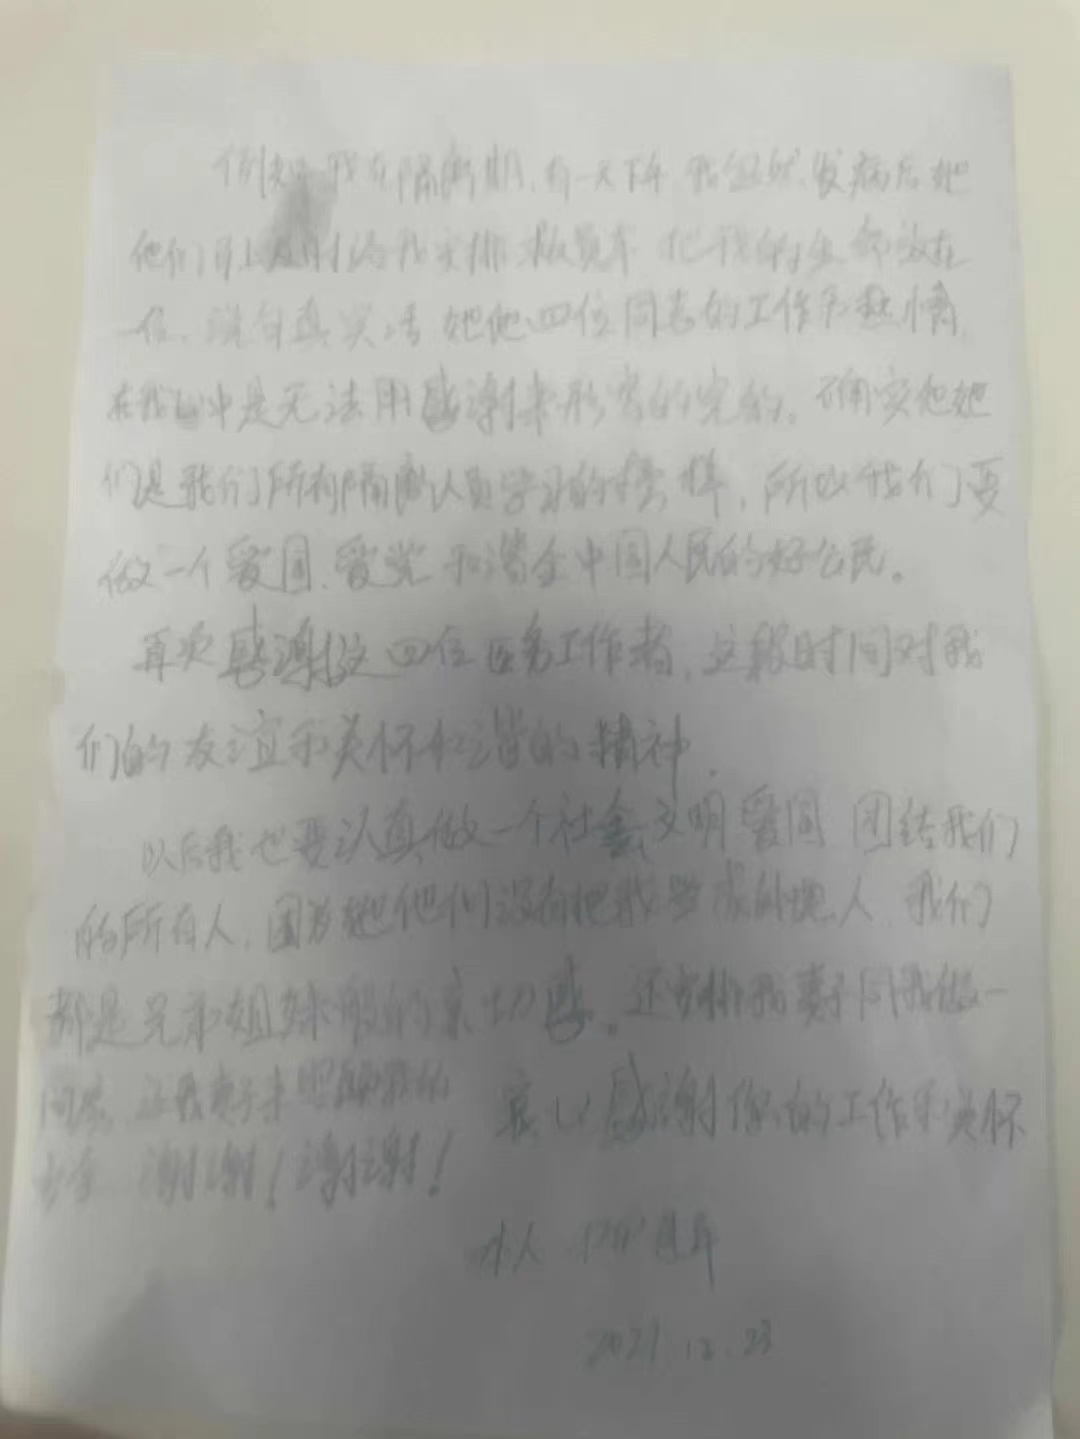 例如我在隔离期,有一天下午 我忽然发病后她
他们马上及时给我安排救员车 把我的生命放在
一位,说句真实话 她他四位同志的工作和热情,
在我心中是无法用感谢来形容的完的。确实他她
们是我们所有隔离人员学习的榜样,所以我们要
做一个爱国、爱党 和谐全中国人民的好公民。
再次感谢这四位医务工作者,这段时间对我
们的友谊和关怀和谐的精神.
以后我也要认真做一个社会文明 爱国 团结我们
的所有人,因为她他们没有把我当成外地人,我们
都是兄弟姐妹般的亲切感。还安排我妻子同我做一
同房,让我妻子来照顾我的
谢谢!谢谢!
衷心感谢你们的工作和关怀
本人
2021.12.23